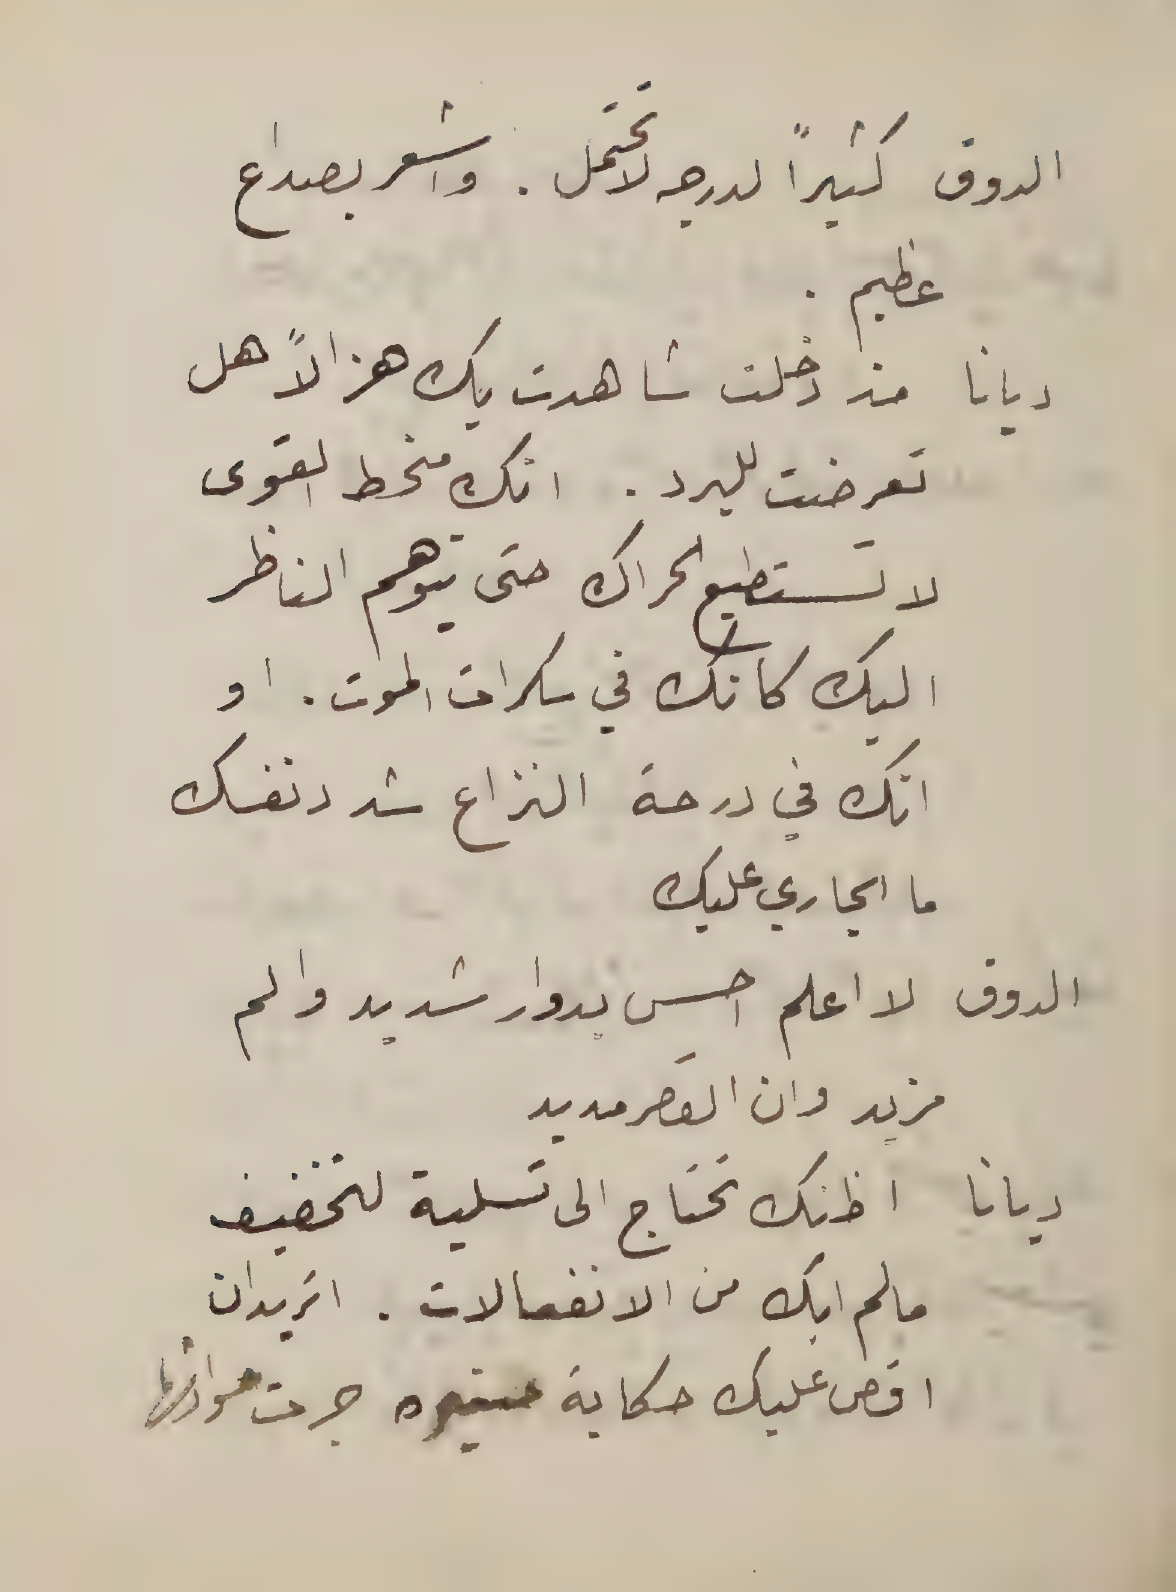 الدوق كثيراً لدرجه لا تحتمل . واشعر بصداع
عظيم .
ديانا منذ دخلت شاهدت بك هزالاً هل
تعرضت للبرد . انك منحط القوى
لا تستطيع الحراك حتى يتوهم الناظر
اليك كانك في سكرات الموت . او
انك في درجة النزاع شدد نفسك
ما الجاري عليك
الدوق لا اعلم احس بدوار شديد والم
مزيد وان القصر مديد
ديانا اظنك تحتاج الى تسلية لتخفيف
مالم ابك من الانفعالات . اتريد ان
اقص عليك حكاية جرت حوادثها